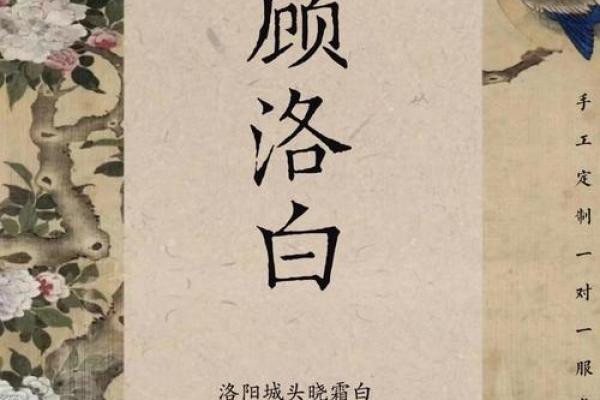 顾洛白
洛阳城头晓霜白
手工定制一对一服